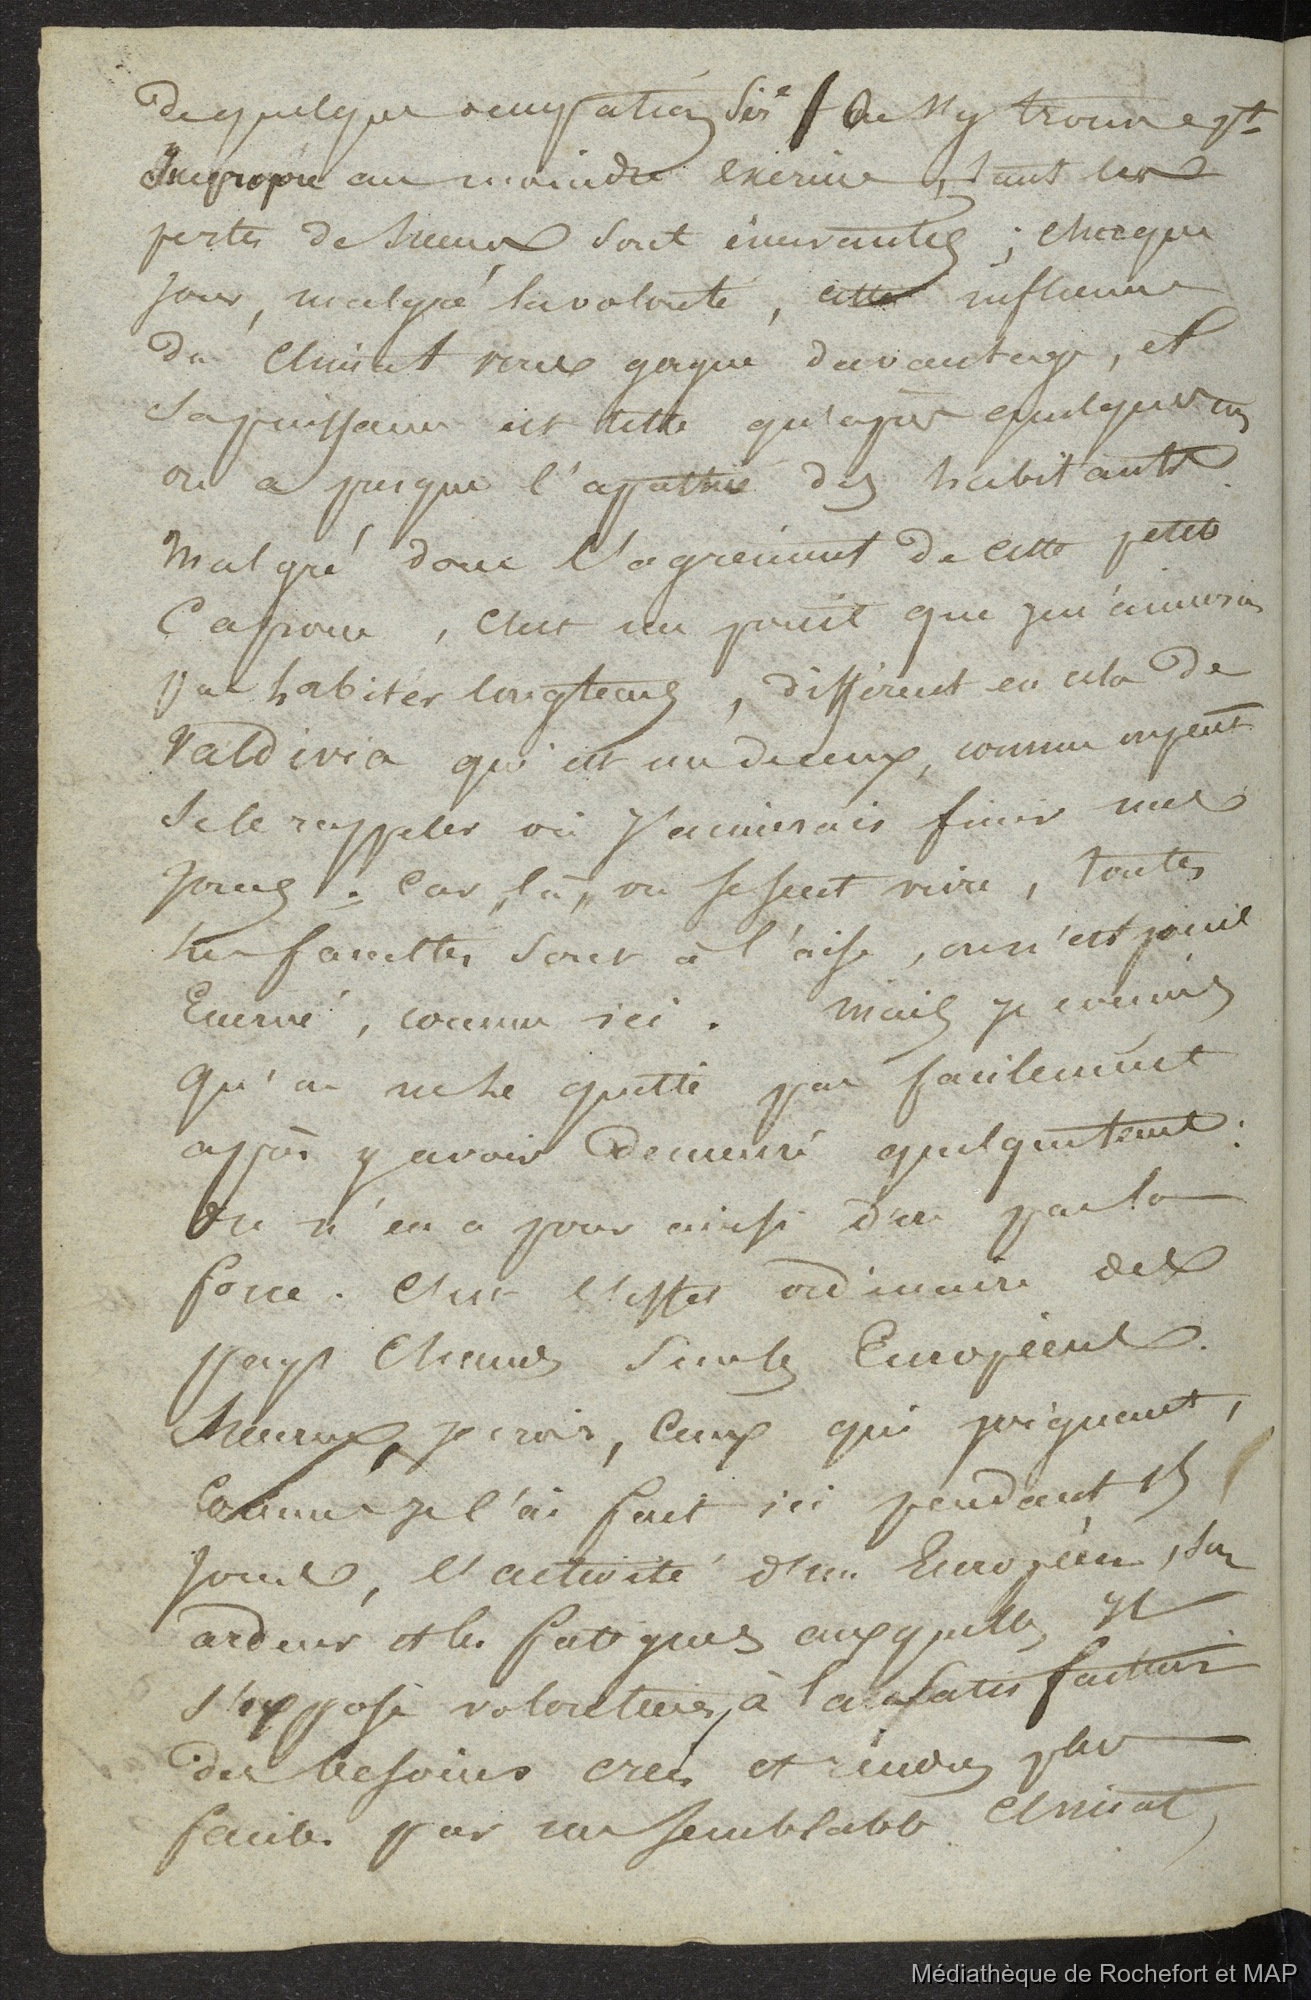 de quelque occupation Sér.e / On s'y trouve cpt.
Impropre au moindre exercice, tant les
pertes de sueurs sont énervantes ; chaque
jour, malgré la volonté, cette influence
du climat vous gagne davantage, et
sa puissance est telle qu'après quelques
on a presque l'apathie des habitants.
Malgré donc l'agrément de cette petite
, c'est un point que je n'aimerais
pas habiter longtems, différent en cela de
Valdivia qui est un de ceux, comme on peut
se le rappeler où j'aimerais finir mes
jours. Car, là, on se sent vivre, toutes
les facultés sont à l'aise, on n'est point
Enervé, comme ici. Mais je conviens
qu'on ne le quitte pas facilement
après y avoir demeuré quelque tems :
On n'en a pour ainsi dire pas la
force. C'est l'effet ordinaire des
pays chauds sur les Européens.
Heureux, je crois, ceux qui joignent,
Comme je l'ai fait ici pendant 15
jours, l'activité d'un Européen, son
ardeur et les fatigues auxquelles il
s'expose volontiers, à la satisfaction
des besoins créés et rendus plus
faciles par un semblable climat,
Médiathèque de Rochefort et MAP